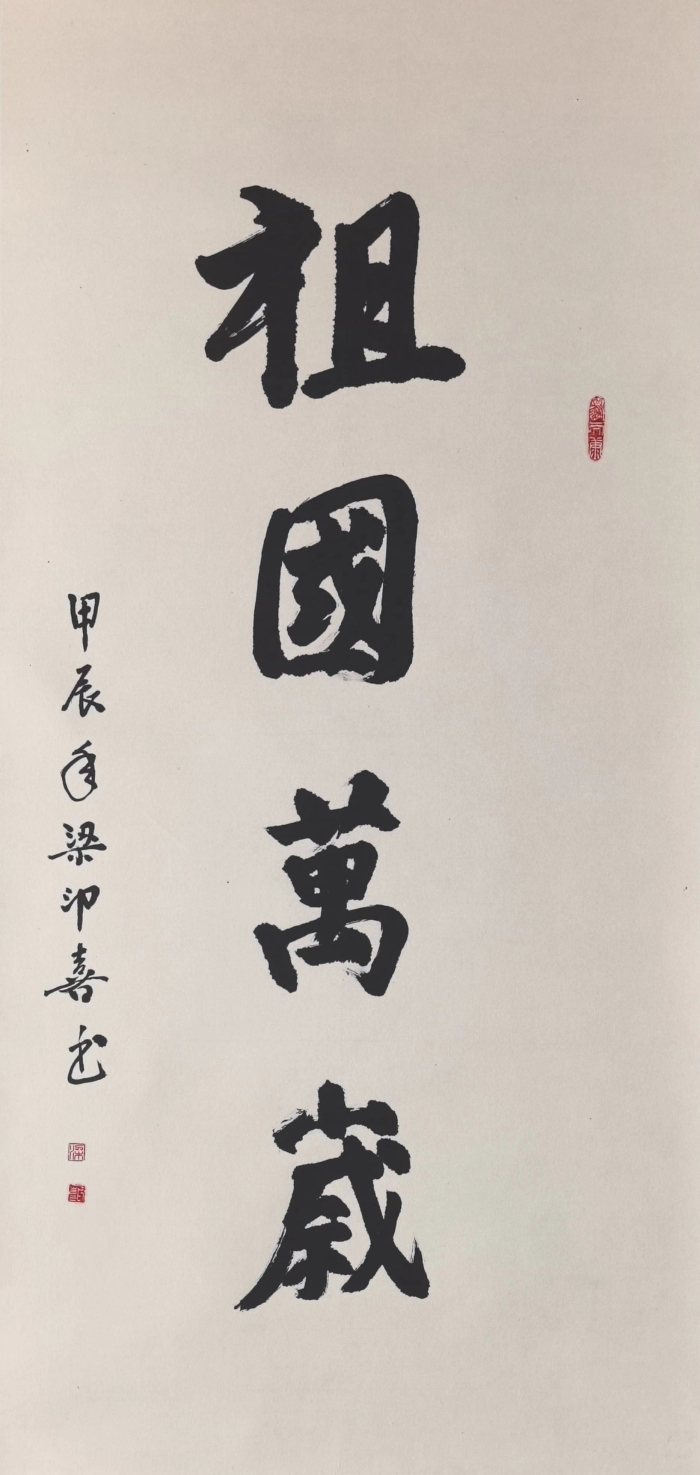 祖國萬歲
甲辰年梁印喜书